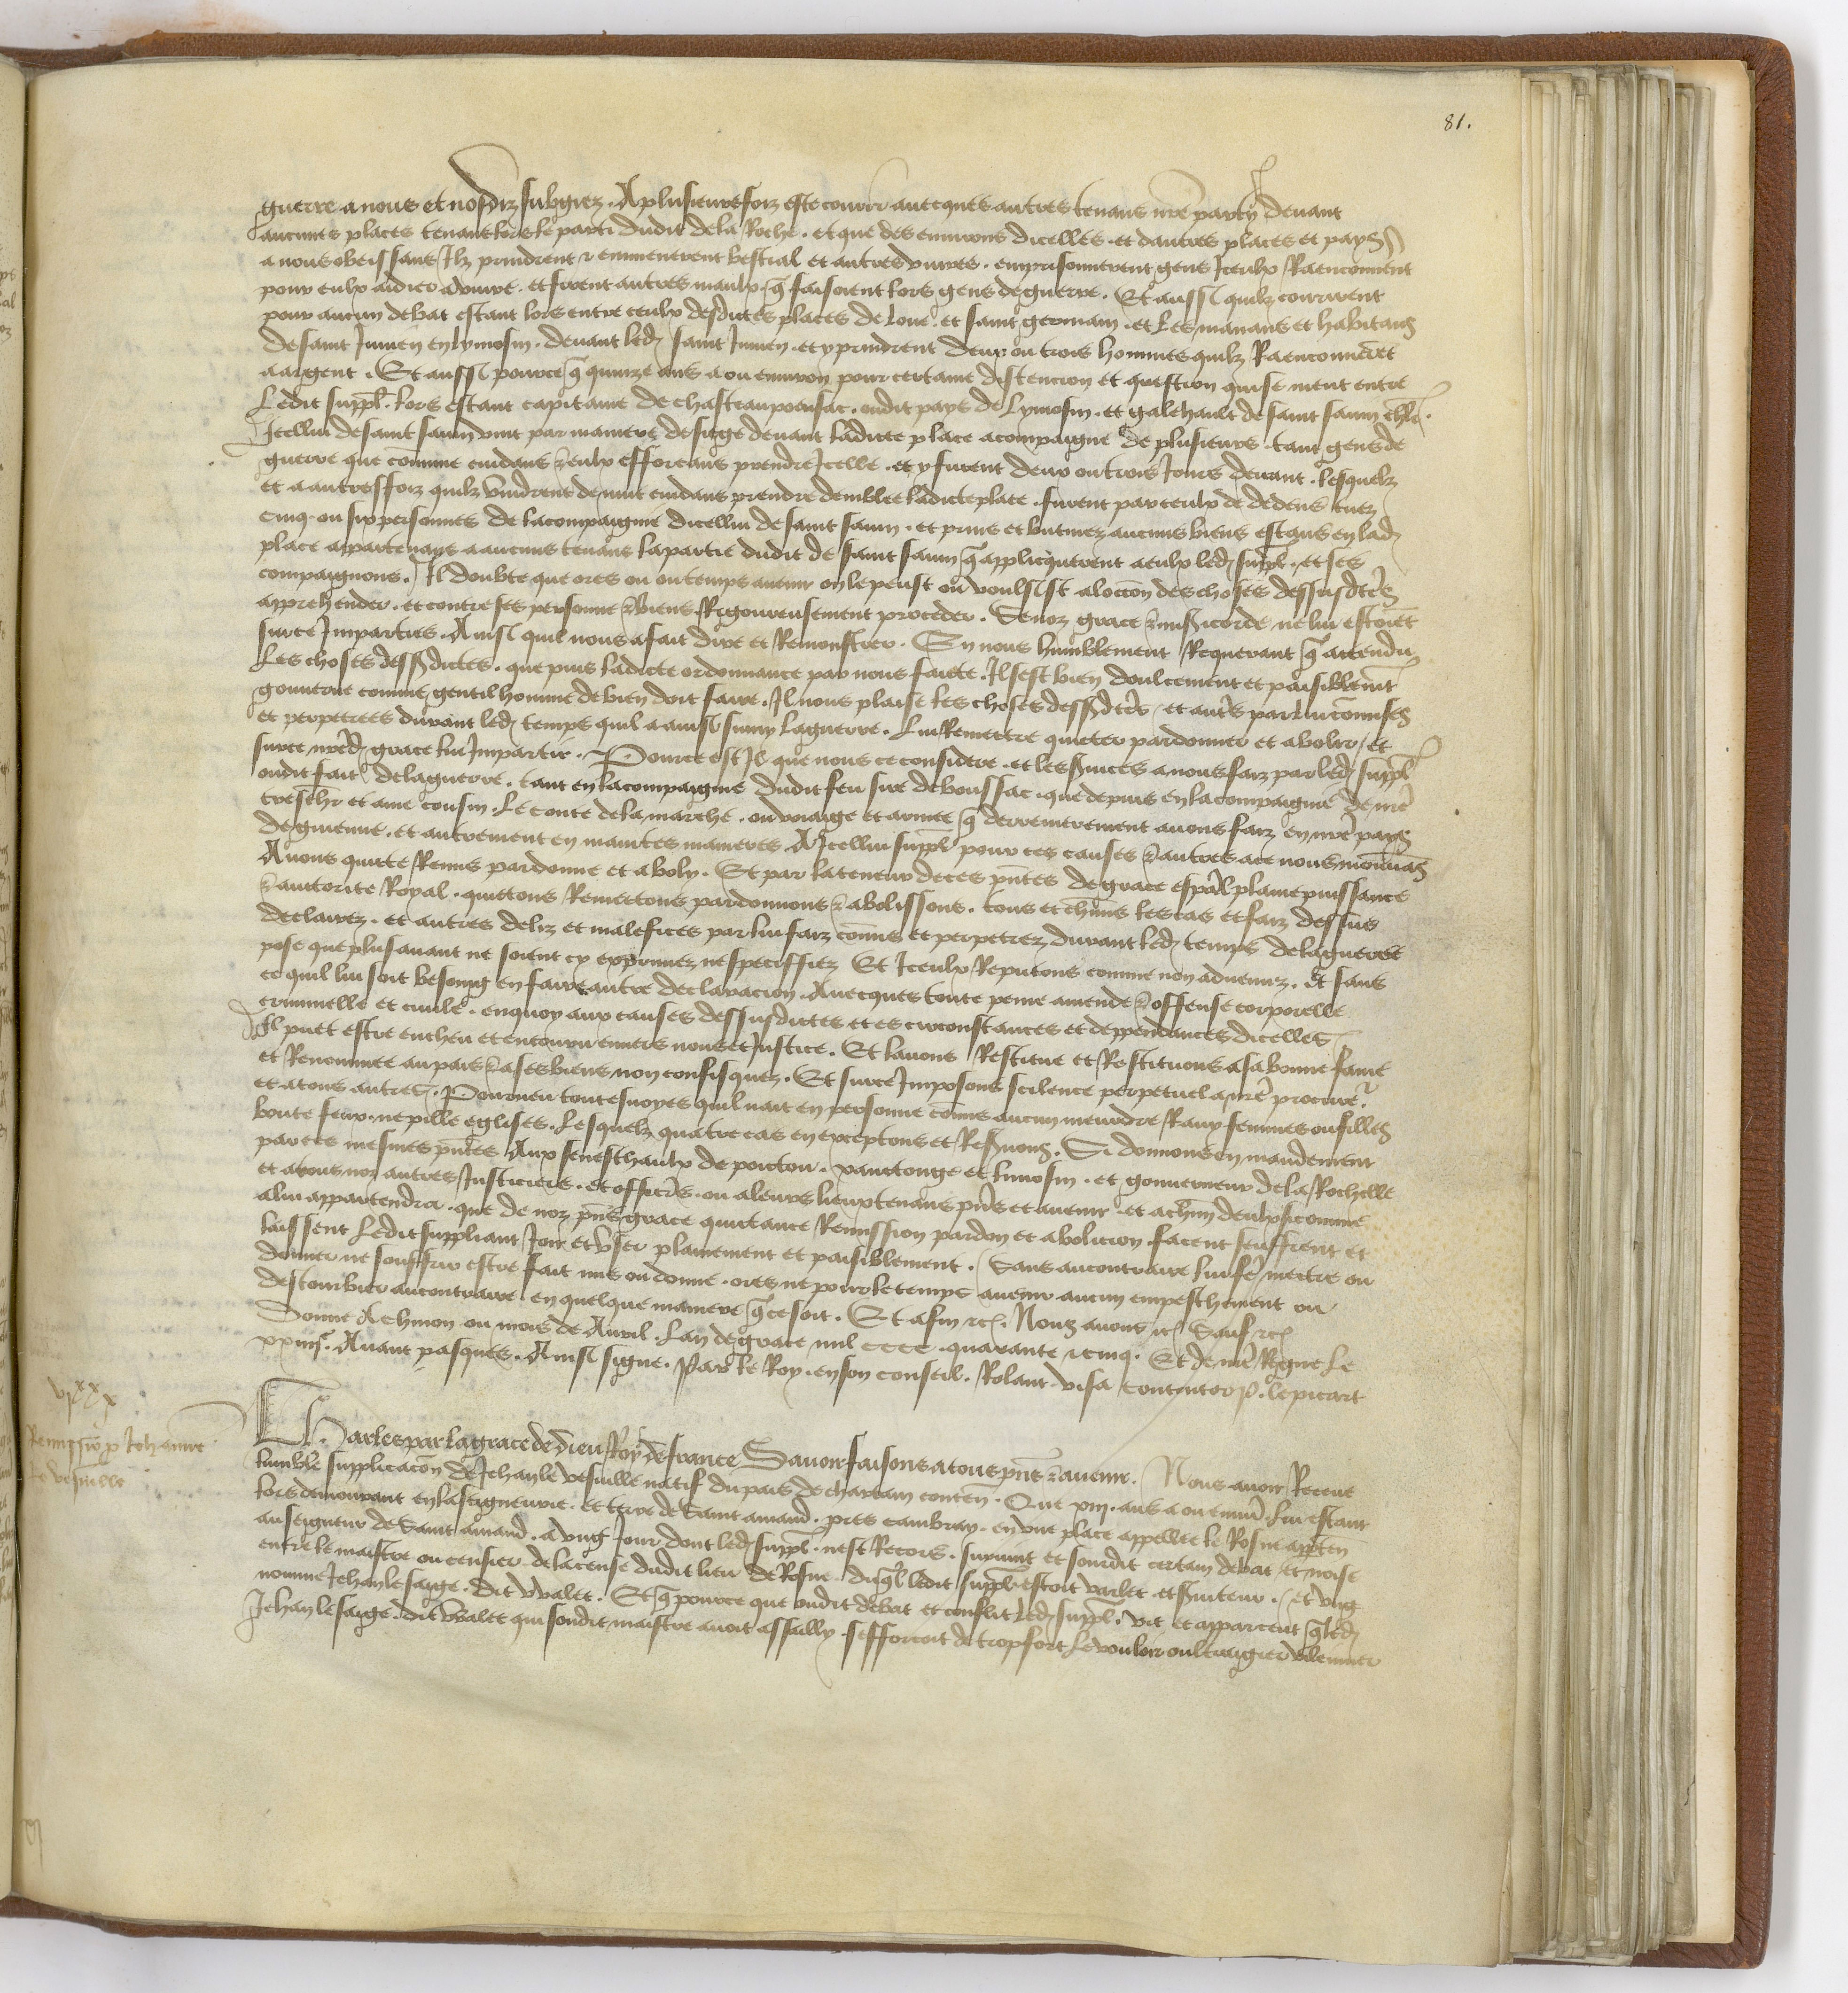 81.
guerre a nous et nosdiz subgiez. A plusieurs foiz este courir avecques autres tenans nre party devant
aucunes places tenans lors le parti dudit de la Roche. et que des environs dicelles. et dautres places et pays
a nous obeissans Ilz prindrent & emmenerent bestial et autres vivres. emprisonnerent gens Iceulx Raenconnerent
pour eulx aidier a vivre. et firent autres maulx q faisoient lors gens de guerre. Et aussi quilz coururent
pour aucun debat estant lors entre ceulx desdictes places de et saint germain. et les manans et habitans
de saint Junien en lymosin. devant led saint Junien. et y prindrent deux ou trois hommes quilz Raenconneret
a argent. Et aussi pource q quinze ans a ou environ pour certaine distencion et question qui se meut entre
Ledit suppl. lors estant capitaine de chasteauponsac. oudit pays de Lymosin. et galehault de saint savin chlr.
Icellui de saint savin vint par maniere de siege devant ladicte place acompaigne de plusieurs. tant gens de
guerre que comme cuidans & eulx efforcans prendre Icelle. et y furent deux ou trois Jours devant. lesquelz
et a autresfoiz quilz vindrent de nuit cuidans prendre demblee ladicte place. furent par ceulx de dedens tuez
cinq ou six personnes de la compaignie dicellui de saint savin. et prins et butinez aucuns biens estans en lad
place appartenans a aucuns tenans la partie dudit de saint savin q applicquerent a eulx led suppl. et ses
compaignons. Il doubte que ores ou ou temps avenir on le peust ou voulsist a loccon des choses dessusdtes
apprehender. et contre ses personne & biens Rigoureusement proceder. Se noz grace & misicorde ne lui estoiet
sur ce Imparties. Ainsi quil nous a fait dire et Remonstrer. En nous humblement Requerant q attendu
Les choses dessdictes. que puis ladicte ordonnance par nous faicte. Il sest bien doulcement et paisiblemt
gouverne comme gentil homme de bien doit faire. Il nous plaise les choses dessdtes et autres par lui comises
et perpetrees durant led temps quil a ainsi suivy la guerre. Lui Remettre quicter pardonner et abolir et
sur ce nred grace lui Impartir. Pource est Il que nous ce considere. et les suices a nous faiz par led suppl
oudit fait de la guerre. tant en la compaignie dudit feu sire de boussac. que depuis en la compaignie de nre
treschr et ame cousin. Le conte de la marche. ou voiaige et armee q derrenierement avons faiz en nre pays
de guienne. et autrement en maintes manieres. A Icellui suppl pour ces causes & autres a ce nous mouvas
Avons quicte Remis pardonne et aboly. Et par la teneur de ces pntes de grace espal plaine puissance
& autorite Royal. quictons Remectons pardonnons & abolissons. tous et chuns les cas et faiz dessus
declairez. et autres deliz et malefices par lui faiz comis et perpetrez durant led temps de la guerre
pose que plus avant ne soient cy exprimez ne speciffiez Et Iceulx Reputons comme non advenuz. Et sans
ce quil lui soit besoing en faire autre declaracion. Avecques toute peine amende & offense corporelle
criminelle et civile. en quoy aux causes dessusdictes et es circonstances et deppendances dicelles
Il puet estre encheu et encouru envers nous et Justice. Et lavons Restitue et Restituons a sa bonne fame
et Renommee au pais & a ses biens non confisquez. Et sur ce Imposons scilence perpetuel a nre procur.
et a tous autres. Pourveu toutesvoyes quil nait en personne comis aucun meurdre Ravy femmes ou filles
boute feux. ne pille eglises. Lesquelz quatre cas en exceptons et Resvons. Si donnons en mandement
par ces mesmes pntes Aux seneschaulx de poictou. xanctonge et limosin. et gouverneur de la Rochelle
et a tous noz autres Justiciers. et officiers. ou a leurs lieuxtenans pns et avenir. et a chun deulx si comme
a lui appartendra. que de noz pns grace quictance Remission pardon et abolicion facent seuffrent et
laissent Ledit suppliant Joir et user plainement et paisiblement. Sans au contraire lui fe mettre ou
donner ne souffrir estre fait mis ou donne. ores ne pour le temps avenir aucun empeschement ou
destourbier au contraire. en quelque maniere q ce soit. Et afin &c. Nous avons &c Sauf &c
Donne A chinon ou mois de Avril. Lan de grace mil cccc. quarante & cinq. Et de nre Regne Le
xxiiije. Avant pasques. Ainsi signe. Par le Roy. en son conseil. Rolant. visa contentor P. le picart
vjxx x
Remissio p Jehanne
le vesville
Charles par la grace de dieu Roy de france Savoir faisons a tous pns & avenir. Nous avoir Receue
lumble supplicacon de Jehan le vesville natif du pais de chartain conten. Que xiij. ans a ou envir. Lui estant
lors demourant en la seigneurie. et terre de Saint amand. pres cambray. en une place appellee le Rosne apten
au seigneur de Saint amand. a ung Jour dont led suppl. nest Recors. survint et sourdit certain debat et noise
entre le maistre ou censier de la cense dudit lieu de Rosne. duql ledit suppl estoit varlet et suiteur. et ung
nomme Jehan le saige. dit Valet. Et q pource que oudit debat et conflit led suppl. vit et apparceut q led
Jehan le saige. dit Valet qui sondit maistre avoit assailly. sefforcoit de trop fort le vouloir oultraigier vilenner